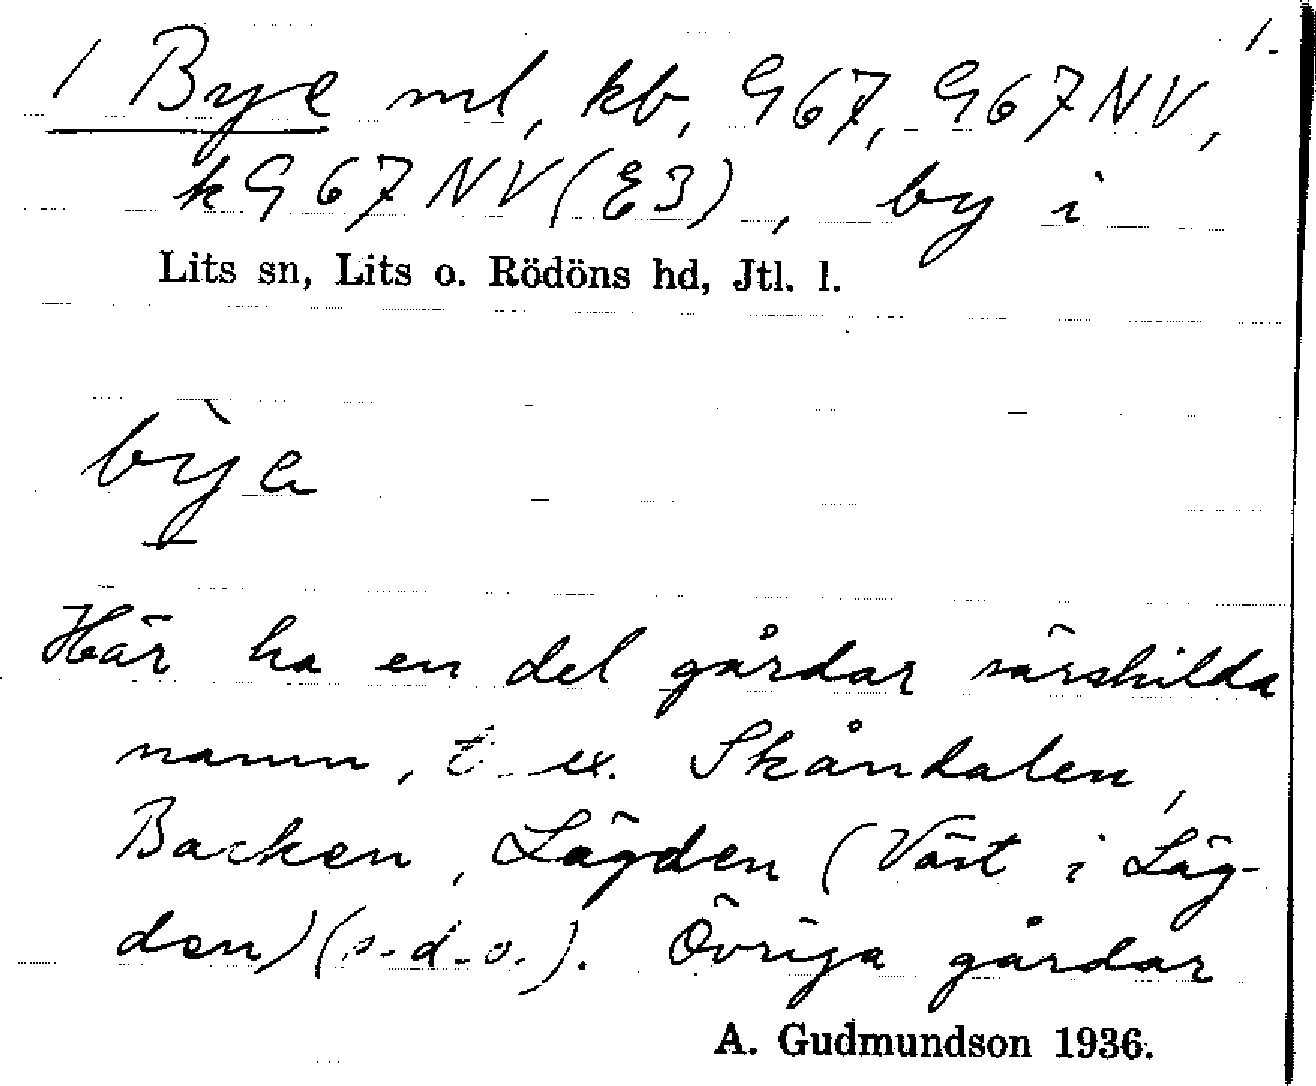 1.
1 Bye ml, kb, G67, G67NV,
kG67NV(E3), by i
Lits sn, Lits o. Rödöns hd, Jtl. l.
bỳe
Här ha en del gårdar särskilda
namn, t. ex. Skåndalen,
Backen, Lägden (Väst i Läg-
den) (s.d.o.). Övriga gårdar
A. Gudmundson 1936.